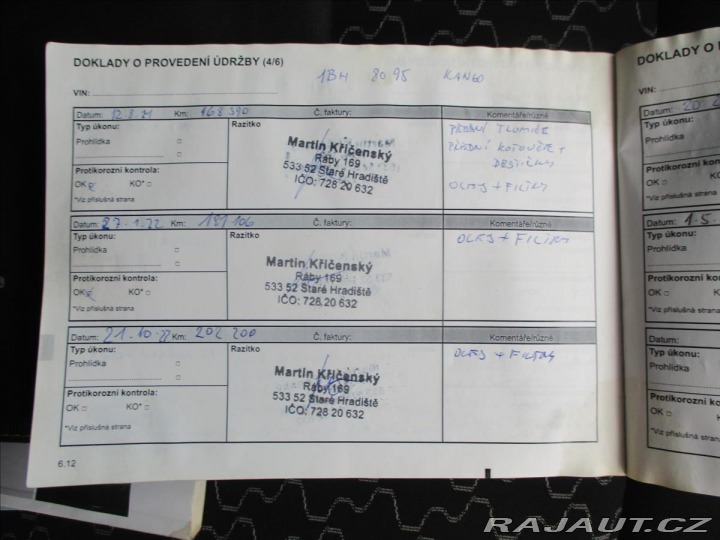 DOKLADY O PROVEDENÍ ÚDRŽBY (4/6)
1BH 8095 KANGO
VIN:
Datum: 12.8.21 Km: 168 390 Č. faktury: Komentáře/různé
Typ úkonu: Razítko
Prohlídka
Protikorozní kontrola:
OK KO*
*Viz příslušná strana
Martin Křičenský
Ráby 169
533 52 Staré Hradiště
IČO: 728 20 632
PŘEDNÍ TLUMIČE
PŘEDNÍ KOTOUČE +
DESTIČKY
OLEJ + FILTRY
Datum: 27.1.22 Km: 181 106 Č. faktury: Komentáře/různé
Typ úkonu: Razítko
Prohlídka
Protikorozní kontrola:
OK KO*
*Viz příslušná strana
Martin Křičenský
Ráby 169
533 52 Staré Hradiště
IČO: 728 20 632
OLEJ + FILTRY
Datum: 21.10.22 Km: 202 200 Č. faktury: Komentáře/různé
Typ úkonu: Razítko
Prohlídka
Protikorozní kontrola:
OK KO*
*Viz příslušná strana
Martin Křičenský
Ráby 169
533 52 Staré Hradiště
IČO: 728 20 632
OLEJ + FILTRY
6.12
DOKLADY O
VIN:
Datum: 20.
Typ úkonu:
Prohlídka
Protikorozní
OK
*Viz příslušná
Datum: 1.5.
Typ úkonu:
Prohlídka
Protikorozní k
OK
*Viz příslušná
Datum:
Typ úkonu:
Prohlídka
Protikorozní
OK
*Viz příslušná s
RAJAUT.CZ